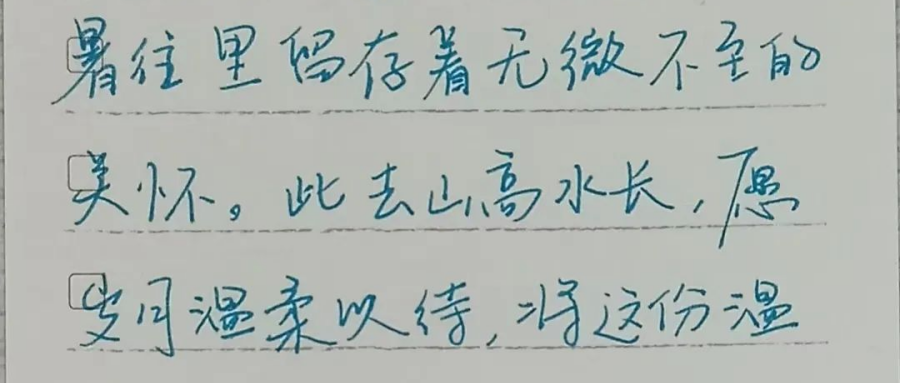 暑往里留存着无微不至的
关怀。此去山高水长,愿
岁月温柔以待,将这份温